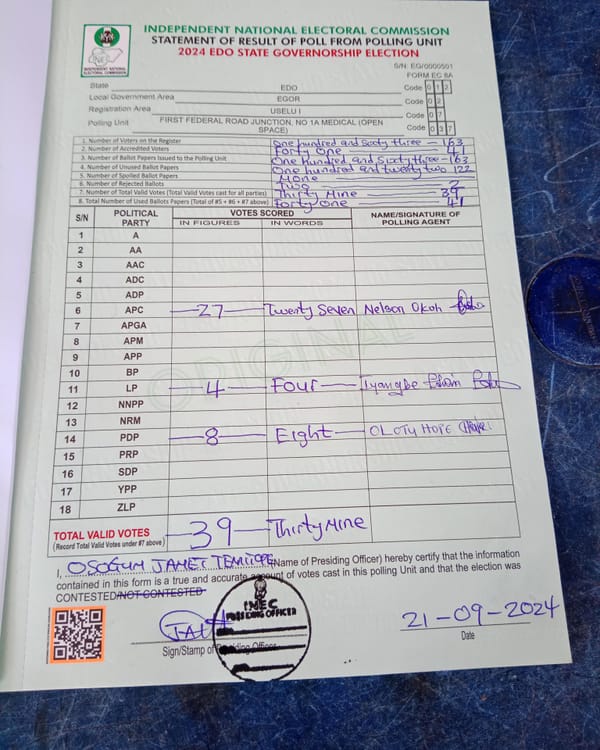 INDEPENDENT NATIONAL ELECTORAL COMMISSION
STATEMENT OF RESULT OF POLL FROM POLLING UNIT
2024 EDO STATE GOVERNORSHIP ELECTION
INDEPENDENT NATIONAL ELECTORAL COMMISSION
S/N: EG/0000501
FORM EC 8A
State EDO Code 0 1 2
Local Government Area EGOR Code 0 2
Registration Area USELU I Code 0 7
Polling Unit FIRST FEDERAL ROAD JUNCTION, NO 1A MEDICAL (OPEN SPACE) Code 0 3 7
1. Number of Voters on the Register One hundred and Sixty three - 163
2. Number of Accredited Voters Forty One 41
3. Number of Ballot Papers Issued to the Polling Unit One Hundred and Sixty three - 163
4. Number of Unused Ballot Papers One hundred and twenty two 122
5. Number of Spoiled Ballot Papers None
6. Number of Rejected Ballots Two 2
7. Number of Total Valid Votes (Total Valid Votes cast for all parties) Thirty Nine 39
8. Total Number of Used Ballots Papers (Total of #5 + #6 + #7 above) Forty One 41
S/N POLITICAL PARTY VOTES SCORED NAME/SIGNATURE OF POLLING AGENT
IN FIGURES IN WORDS
1 A
2 AA
3 AAC
4 ADC
5 ADP
6 APC 27 Twenty Seven Nelson Okoh
7 APGA
8 APM
9 APP
10 BP
11 LP 4 Four
12 NNPP
13 NRM
14 PDP 8 Eight
15 PRP
16 SDP
17 YPP
18 ZLP
ORIGINAL
TOTAL VALID VOTES 39 Thirty Nine
(Record Total Valid Votes under #7 above)
I, OSOGUM JANET TEMITOPE (Name of Presiding Officer) hereby certify that the information
contained in this form is a true and accurate account of votes cast in this polling Unit and that the election was
CONTESTED/NOT CONTESTED
INEC
PRESIDING OFFICER
21-09-2024
Sign/Stamp of Presiding Officer Date